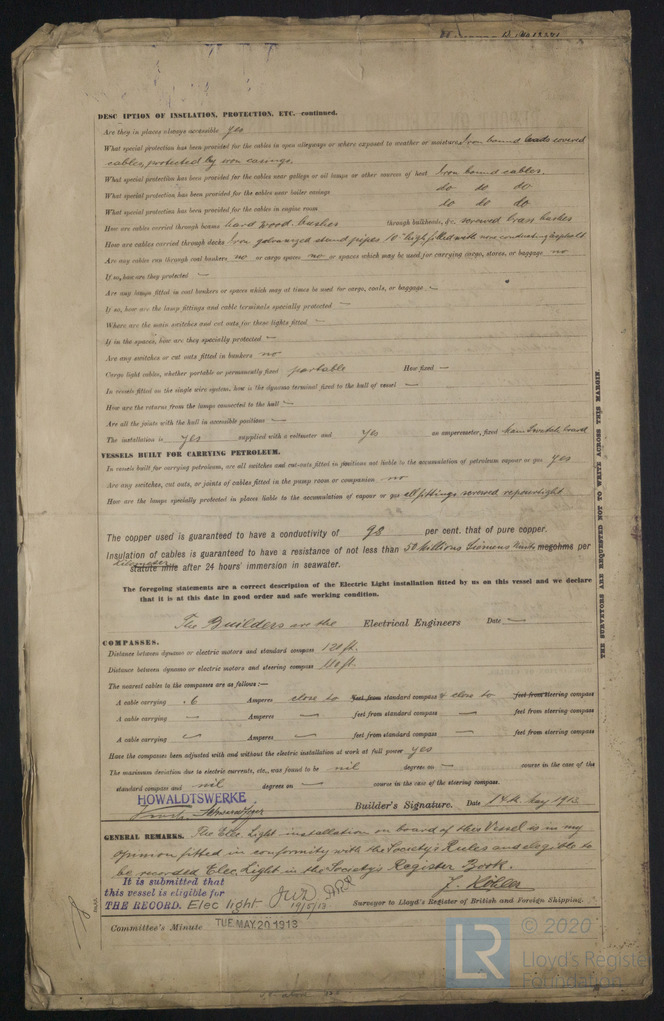 DESC IPTION OF INSULATION, PROTECTION, ETC.—continued.
Are they in places always accessible yes
What special protection has been provided for the cables in open alleyways or where exposed to weather or moisture Iron bound leads covered
cables, protected by iron casings.
What special protection has been provided for the cables near galleys or oil lamps or other sources of heat Iron bound cables.
What special protection has been provided for the cables near boiler casings do do do
What special protection has been provided for the cables in engine room do do do
How are cables carried through beams hard wood bushes through bulkheads, &c. screwed brass bushes
How are cables carried through decks Iron galvanized stand pipes 10" high filled with non conducting asphalt
Are any cables run through coal bunkers no or cargo spaces no or spaces which may be used for carrying cargo, stores, or baggage no
If so, how are they protected —
Are any lamps fitted in coal bunkers or spaces which may at times be used for cargo, coals, or baggage —
If so, how are the lamp fittings and cable terminals specially protected —
Where are the main switches and cut outs for these lights fitted —
If in the spaces, how are they specially protected —
Are any switches or cut outs fitted in bunkers no
Cargo light cables, whether portable or permanently fixed portable How fixed —
In vessels fitted on the single wire system, how is the dynamo terminal fixed to the hull of vessel —
How are the returns from the lamps connected to the hull —
Are all the joints with the hull in accessible positions —
The installation is yes supplied with a voltmeter and yes an amperemeter, fixed Main Switch board
VESSELS BUILT FOR CARRYING PETROLEUM.
In vessels built for carrying petroleum, are all switches and cut-outs fitted in positions not liable to the accumulation of petroleum vapour or gas yes
Are any switches, cut outs, or joints of cables fitted in the pump room or companion no
How are the lamps specially protected in places liable to the accumulation of vapour or gas all fittings screwed vapourtight
The copper used is guaranteed to have a conductivity of 98 per cent. that of pure copper.
Insulation of cables is guaranteed to have a resistance of not less than 50 Millions Siemens Units megohms per
kilometer
statute mile after 24 hours' immersion in seawater.
The foregoing statements are a correct description of the Electric Light installation fitted by us on this vessel and we declare
that it is at this date in good order and safe working condition.
The Builders are the Electrical Engineers Date —
COMPASSES.
Distance between dynamo or electric motors and standard compass 120 ft.
Distance between dynamo or electric motors and steering compass 110 ft.
The nearest cables to the compasses are as follows:—
A cable carrying .6 Amperes close to feet from standard compass & close to feet from steering compass
A cable carrying — Amperes — feet from standard compass — feet from steering compass
A cable carrying — Amperes — feet from standard compass — feet from steering compass
Have the compasses been adjusted with and without the electric installation at work at full power yes
The maximum deviation due to electric currents, etc., was found to be nil degrees on — course in the case of the
standard compass and nil degrees on — course in the case of the steering compass.
HOWALDTSWERKE
Builder's Signature. Date 14th May 1913
GENERAL REMARKS. The Elec. Light installation on board of this Vessel is in my
opinion fitted in conformity with the Society's Rules and eligible to
be recorded Elec. Light in the Society's Register Book.
It is submitted that
this vessel is eligible for
THE RECORD. Elec light 19/5/13
Surveyor to Lloyd's Register of British and Foreign Shipping.
Committee's Minute TUE. MAY. 20 1913
THE SURVEYORS ARE REQUESTED NOT TO WRITE ACROSS THIS MARGIN.
LR
© 2020
Lloyd's Register
Foundation